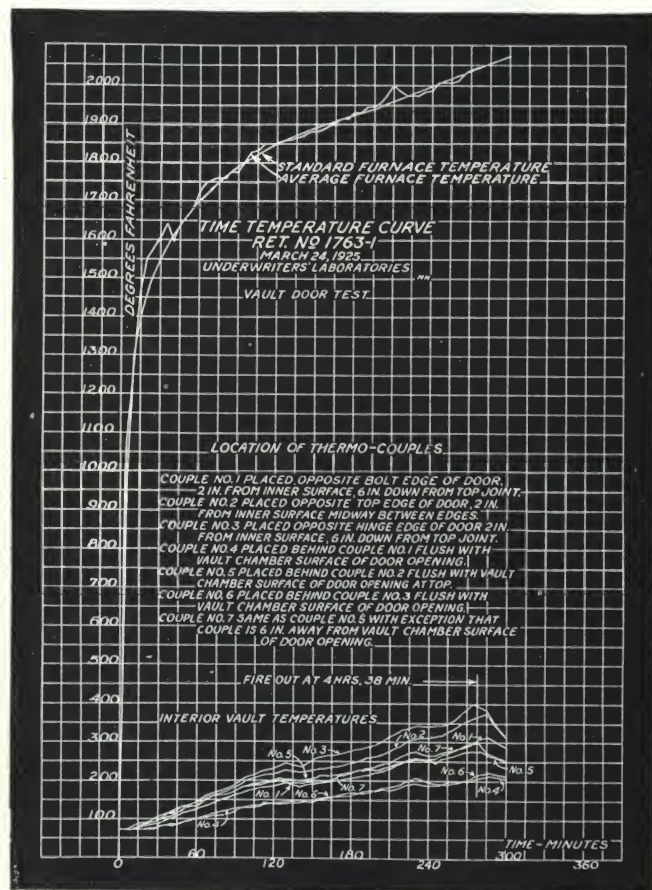 2000
1900
1800
1700
1600
1500
1400
1300
1200
1100
1000
900
800
700
600
500
400
300
200
100
DEGREES FAHRENHEIT
STANDARD FURNACE TEMPERATURE
AVERAGE FURNACE TEMPERATURE
TIME TEMPERATURE CURVE
RET. NO 1763-1
MARCH 24, 1925
UNDERWRITERS' LABORATORIES
VAULT DOOR TEST
LOCATION OF THERMO-COUPLES
COUPLE NO. 1 PLACED OPPOSITE BOLT EDGE OF DOOR,
2 IN. FROM INNER SURFACE, 6 IN. DOWN FROM TOP JOINT.
COUPLE NO. 2 PLACED OPPOSITE TOP EDGE OF DOOR, 2 IN.
FROM INNER SURFACE MIDWAY BETWEEN EDGES.
COUPLE NO. 3 PLACED OPPOSITE HINGE EDGE OF DOOR 2 IN.
FROM INNER SURFACE, 6 IN. DOWN FROM TOP JOINT.
COUPLE NO. 4 PLACED BEHIND COUPLE NO. 1 FLUSH WITH
VAULT CHAMBER SURFACE OF DOOR OPENING.
COUPLE NO. 5 PLACED BEHIND COUPLE NO. 2 FLUSH WITH VAULT
CHAMBER SURFACE OF DOOR OPENING AT TOP.
COUPLE NO. 6 PLACED BEHIND COUPLE NO. 3 FLUSH WITH
VAULT CHAMBER SURFACE OF DOOR OPENING.
COUPLE NO. 7 SAME AS COUPLE NO. 5 WITH EXCEPTION THAT
COUPLE IS 6 IN. AWAY FROM VAULT CHAMBER SURFACE
OF DOOR OPENING.
FIRE OUT AT 4 HRS, 38 MIN.
INTERIOR VAULT TEMPERATURES
No. 5
No. 3
No. 2
No. 7
No. 1
No. 1
No. 6
No. 7
No. 6
No. 5
No. 4
No. 4
TIME - MINUTES
0
60
120
180
240
300
360